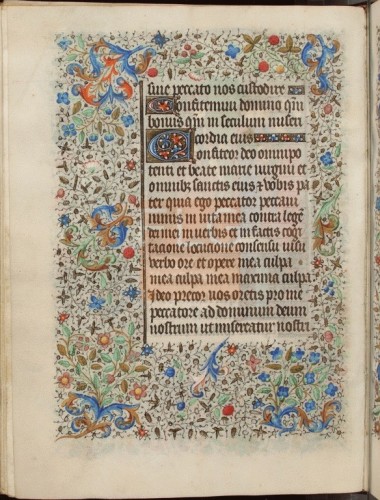 sine peccato nos custodire
Confitemini domino qm̄
bonus qm̄ in seculum miseri
cordia eius
Confiteor deo omnipo
tenti et beate marie virgini et
omnibz sanctis eius et vobis pa
ter quia ego peccator peccaui
nimis in vita mea contra legē
dei mei in verbis et in factis cogi
tacione locutione consensu visu
verbo ore et opere mea culpa
mea culpa mea maxima culpa
Ideo precor vos oretis pro me
peccatore ad dominum deum
nostrum ut misereatur nostri